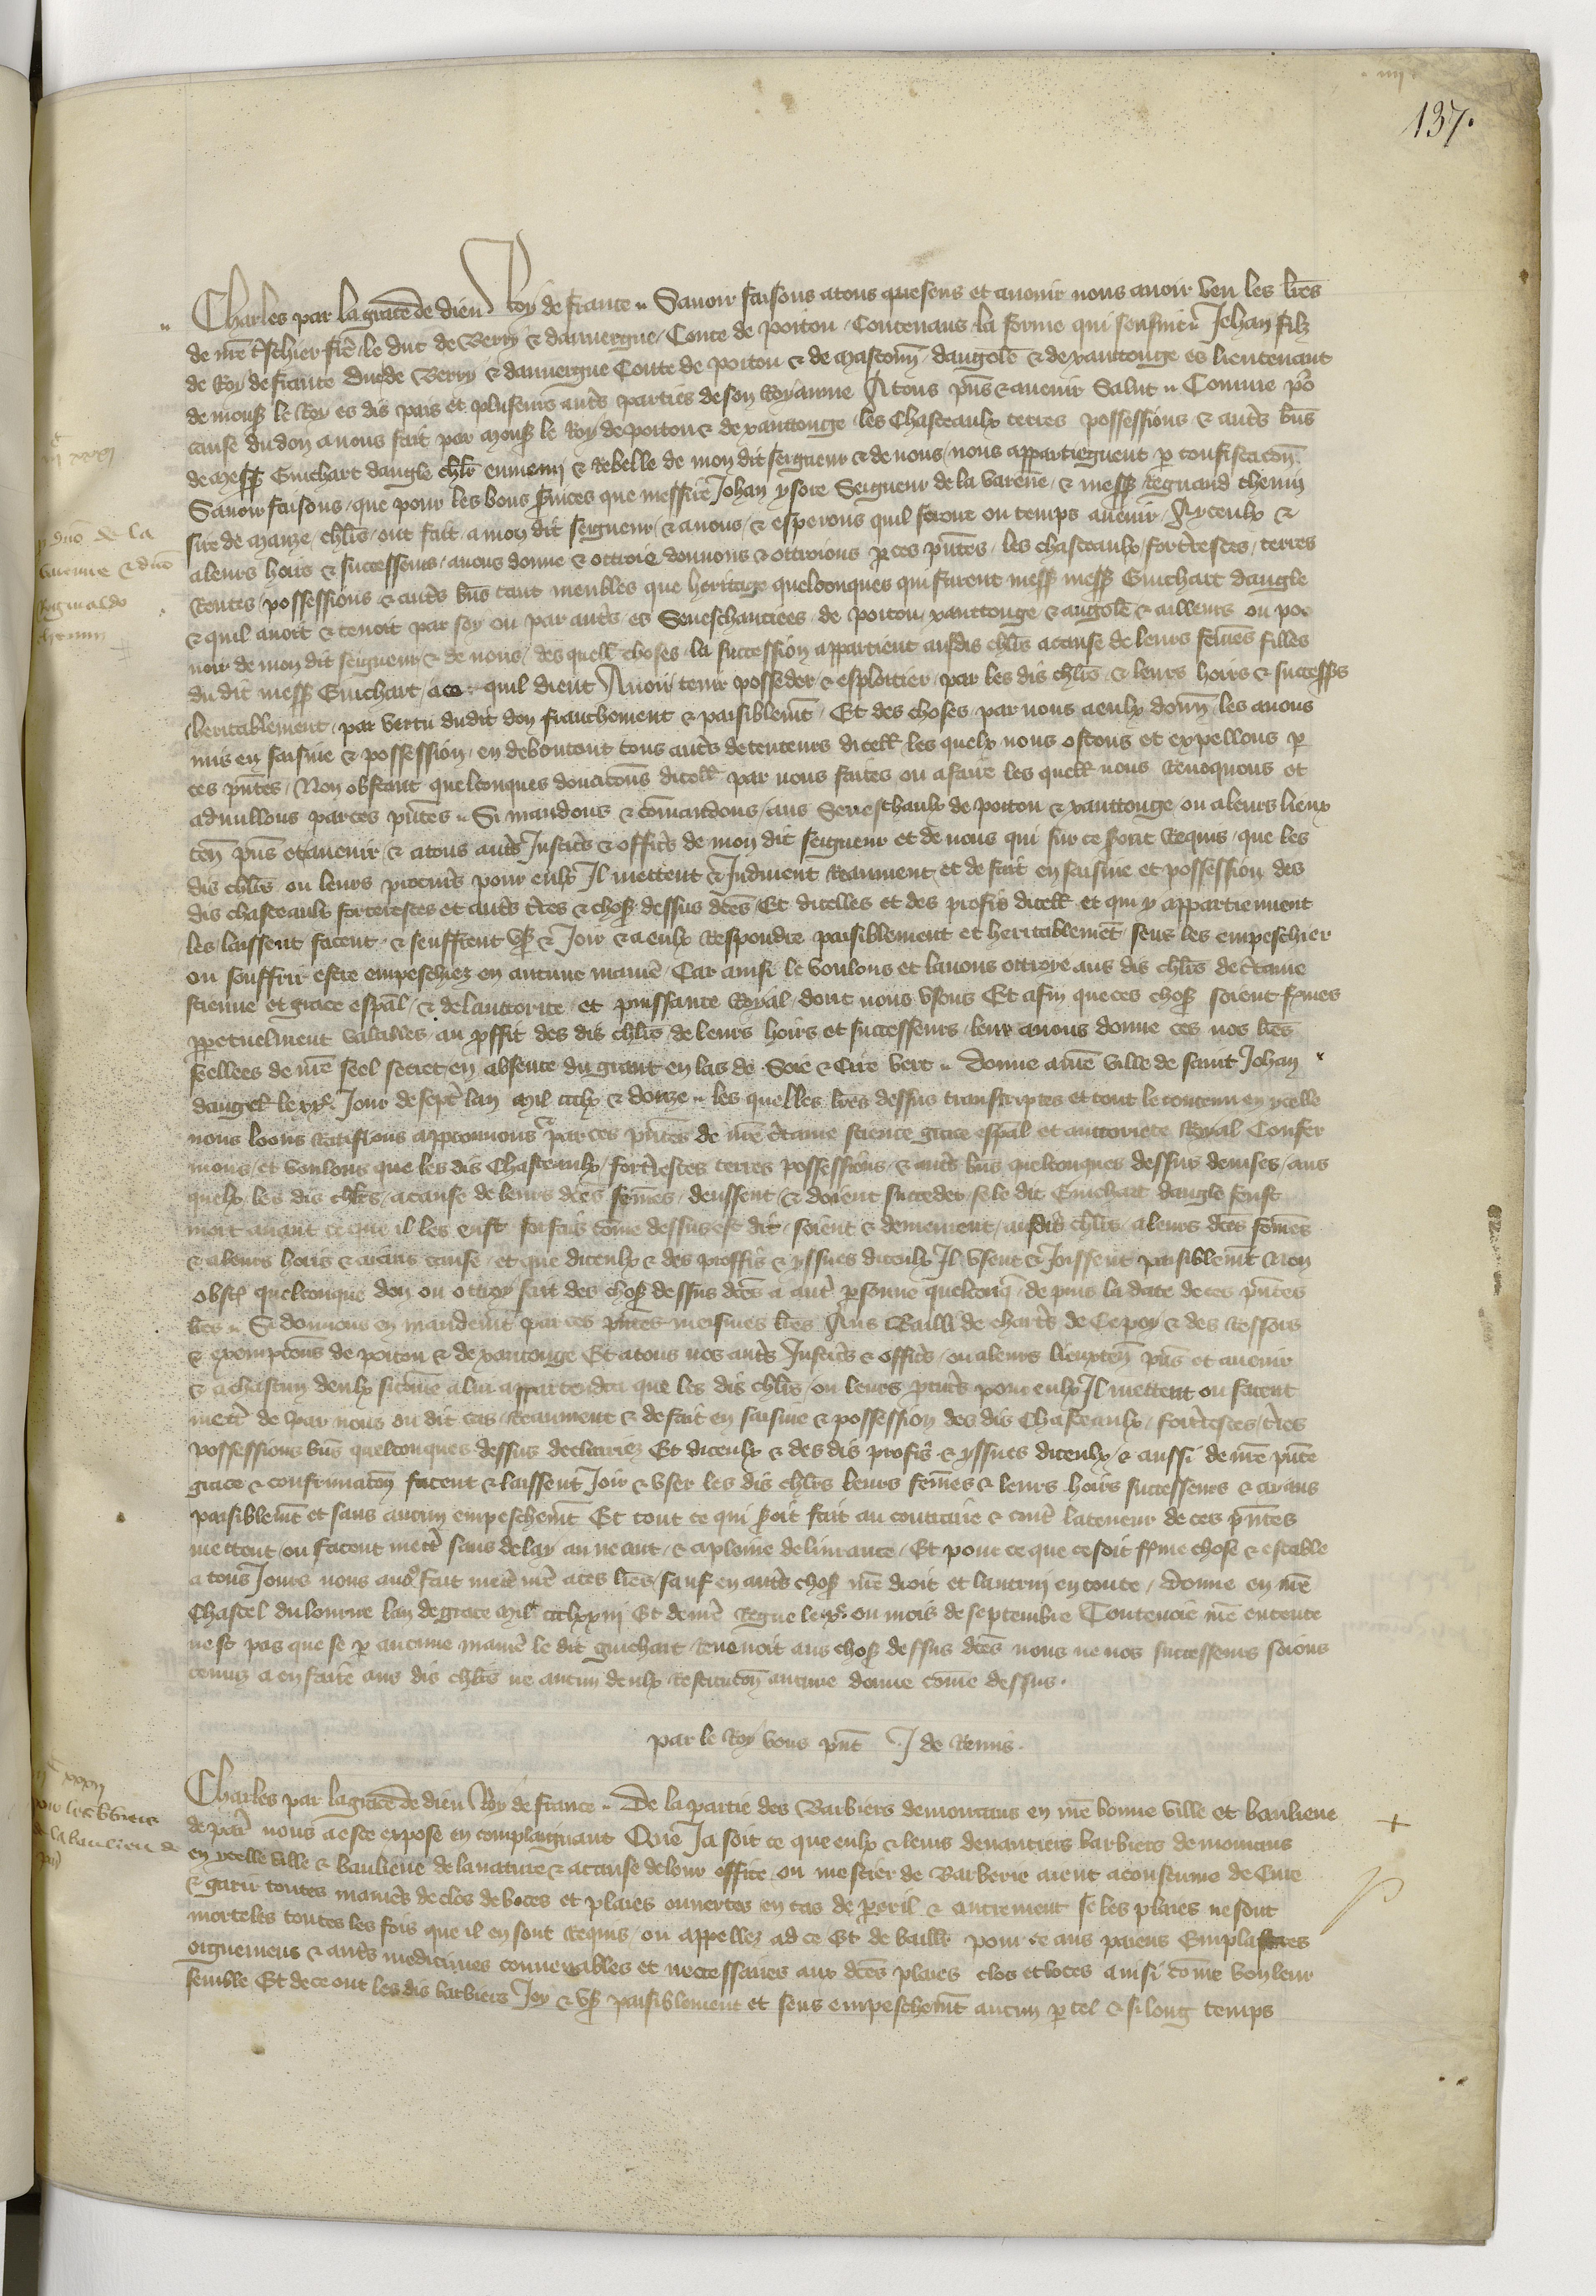 137.
Charles par la grace de dieu Roy de france .. Sauoir faisons a tous presens et auenir nous auoir veu les lrẽs
de nrẽ tẽschier frẽ le duc de Berry & dauuergne Conte de poitou Contenans la forme qui sensuit Jehan filz
de Roy de france Duc de Berry & dauuergne Conte de poitou & de masconñ daugolẽ & de xanctonge es lieutenant
de mons̃ le Roy es dis pais et pluseurs autr̃s parties de son Royaume A tous pñs & auenir Salut .. Comme po˜
cause du don a nous fait par mons̃ le Roy de poitou & de xanctonge les Chasteaulx terres possessions & autr̃s biẽs
de mess̃ Guichart dangle chlr̃ ennemy & Rebelle de mon dit seigneur & de nous nous appartiegnent p confiscaciõn
Sauoir faisons que pour les bons s̃uices que messire Jehan ysore Seigneur de la Varenne & mess̃ Regnaud chenin
sire de mauze chlr̃s ont fait a mon dit seigneur & a nous & esperons quil feront ou temps auenir A yceulx &
a leurs hoirs & successeurs auons donne & ottroie donnons & ottroions p ces pñtes les chasteaulx fortresces terres
Rentes possessions & autr̃s biẽs tant meubles que heritage quelconques qui furent mess̃ mess̃ Guichart dangle
& quil auoit & tenoit par soy ou par autr̃s es Seneschauciees de poitou xanctonge & angolẽ & ailleurs ou po
uoir de mon dit seigneur & de nous des quell choses la succession appartient ausdis chlr̃s a cause de leurs femẽs filles
du dit mess̃ Guichart a ce quil dient A auoir tenir posseder & esploictier par les dis chlr̃s & leurs hoirs & success̃s
heritablement par vertu dudit don franchement & paisiblemt̃ Et des choses par nous a eulx donñ les auons
mis en saisine & possession en deboutant tous autr̃s detenteurs dicell les quelx nous ostons et expellons p
ces pñtes Non obstant quelconques donacions dicell par nous faites ou a faire les quell nous Reuoquons et
adnullons par ces pñtes .. Si mandons & cõmandons aus Seneschaulx de poitou & xanctonge ou a leurs lieux
teñ pñs et auenir & a tous autr̃s Justic̃s & offic̃s de mon dit seigneur et de nous qui sur ce seront Requis que les
dis chlr̃s ou leurs procur̃s pour eulx Il mettent & Induient Reaument et de fait en saisine et possession des
dis chasteaulx forteresces et autr̃s tr̃res & chos̃ dessus dc̃es Et dicelles et des profis dicell et qui y appartiennent
les laissent facent & seuffrent vs̃ & Joir & a eulx Respondre paisiblement et heritablemẽt sens les empeschier
ou souffrir estre empeschiez en aucune manier̃ Car ainsi le voulons et lauons ottroye aus dis chlr̃s de c̃taine
science et grace esp̃al & de lauctorite et puissance Royal dont nous vsons Et afin que ces chos̃ soient f̃mes
ppetuelment valables au p̃ffit des dis chlr̃s de leurs hoirs et successeurs leur auons donne ces nos lrẽs
seellees de nrẽ seel secret en absence du grant en las de Soie & Cire vert .. Donne a nrẽ ville de saint Jehan
dangel̃ le xx.e Jour de sept̃ lan Mil ccclx & douze .. les quelles lrẽs dessus transcriptes et tout le contenu en ycelle
nous loons Ratifions approuuons & par ces pñtes de nrẽ c̃taine science grace esp̃al et auctorite Royal Confer
mons et voulons que les dis Chasteaulx fortresces terres possessions & autr̃s biẽs quelconques dessus deuises aus
quelx les dis chlr̃s a cause de leurs dc̃es femẽs deussent & doient succeder se le dit Guichart dangle feust
mort auant ce que il les eust forfais cõme dessus est dit soient & demeurent ausdis chlr̃s a leurs dc̃es femẽs
& a leurs hoirs & aians cause et que diceulx & des proffis & yssues diceulx Il vsent & Joissent paisiblemt̃ Non
obst̃ quelconque don ou ottroy fait des chos̃ dessus dc̃es a autr̃ p̃sonne quelconq̃ de puis la date de ces pñtes
lrẽs .. Si donnons en mandemt̃ par ces pñtes meismes lrẽs Aus Bailli de chartr̃s de Cepoy & des Ressors
& exempciõns de poitou & de xantonge Et a tous nos autr̃s Justic̃s & offic̃s ou a leurs lieuxteñ pñs et auenir
& a chascun deulx si cõme a lui appartendra que les dis chlr̃s ou leurs pcur̃s pour eulx Il mettent ou facent
mettr̃ de par nous ou dit cas Reaument & de fait en saisine & possession des dis Chasteaulx fortresces tr̃res
possessions biẽs quelconques dessus declairiez Et diceulx & des dis profis & yssues diceulx & aussi de nrẽ pñte
grace & confirmaciõn facent & laissent Joir & vser les dis chlr̃s leurs femẽs & leurs hoirs successeurs & aians
paisiblemt̃ et sans aucun empeschemt̃ Et tout ce qui s̃oit fait au contraire & contr̃ la teneur de ces pñtes
mettent ou facent mettr̃ sans delay au neant & a pleine deliurance Et pour ce que ce soit f̃me chose & estable
a tous Jours nous auõs fait mettr̃ nrẽ a ces lrẽs sauf en autr̃s chos̃ nrẽ droit et lautruj en toute Donne en nrẽ
Chastel du louure lan de grace Mil ccclxxij Et de nrẽ Regne le ix.e ou mois de septembre Contenoit nrẽ entente
nest pas que se p aucune manier̃ le dit guichart Reuenoit aus chos̃ dessus dc̃es nous ne nos successeurs soions
tenus a en faire aus dis chlr̃s ne aucun deulx Restituciõn aucune donne cõme dessus .
par le Roy vous pñt J de Remis .
Charles par la grace de dieu Roy de france .. De la partie des Barbiers demourans en nrẽ bonne ville et banlieue
de par̃ nous a este expose en complaignant Que Ja soit ce que eulx & leurs deuanciers barbiers demourans
en ycelle ville & banlieue de la nature & a cause de leur office ou mestier de Barberie aient acoustume de Cure
& garir toutes manier̃s de clos de boces et plaies ouuertes en cas de p̃eril & autrement se les plaies ne sont
morteles toutes les fois que il en sont Requis ou appellez ad ce Et de baill̃r pour ce aus paciens Emplastres
oignemens & autr̃s medicines conuenables et necessaires aux dc̃es plaies clos et boces ainsi cõme bon leur
semble Et de ce ont les dis barbiers Joy & vs̃ paisiblement et sens empeschemt̃ aucun p tel & si long temps